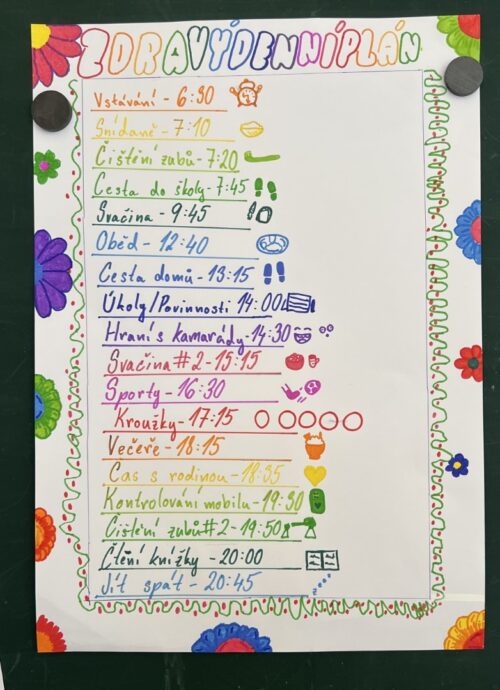 ZDRAVÝ DENNÍ PLÁN
Vstávání - 6:30
Snídaně - 7:10
Čištění zubů - 7:20
Cesta do školy - 7:45
Svačina - 9:45
Oběd - 12:40
Cesta domů - 13:15
Úkoly/Povinnosti 14:00
Hraní s kamarády - 14:30
Svačina #2 - 15:15
Sporty - 16:30
Kroužky - 17:15
Večeře - 18:15
Čas s rodinou - 18:35
Kontrolování mobilu - 19:30
Čištění zubů #2 - 19:50
Čtění knížky - 20:00
Jít spát - 20:45